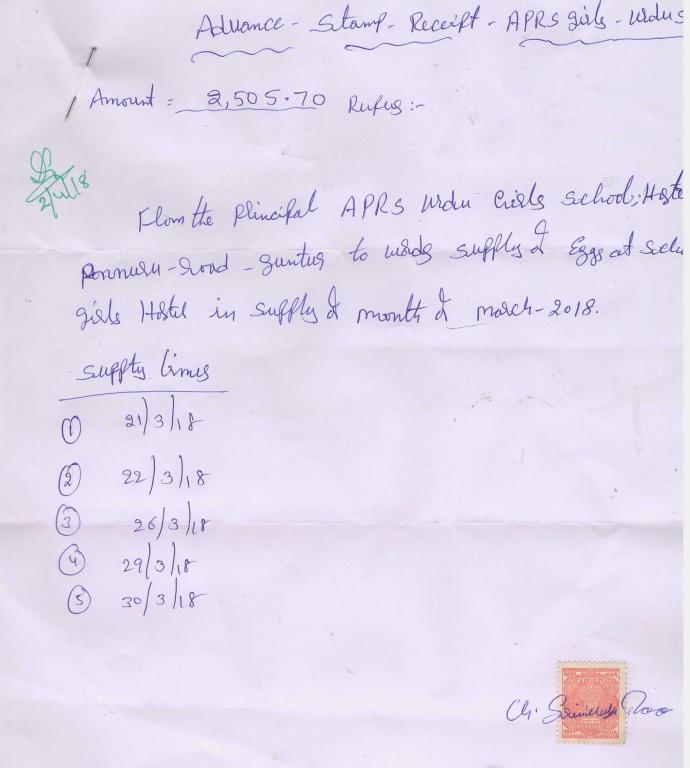 Advance - Stamp - Receipt - APRS girls - Urdu S
Amount = 2,505.70 Rufus :-
2/4/18
From the Principal APRS Urdu Girls School, Hoste
ponnuru - Road - guntur to wards supply of Eggs at Scho
girls Hostel in supply of month of march - 2018.
supply times
① 21/3/18
② 22/3/18
③ 26/3/18
④ 29/3/18
⑤ 30/3/18
Ch. Rao